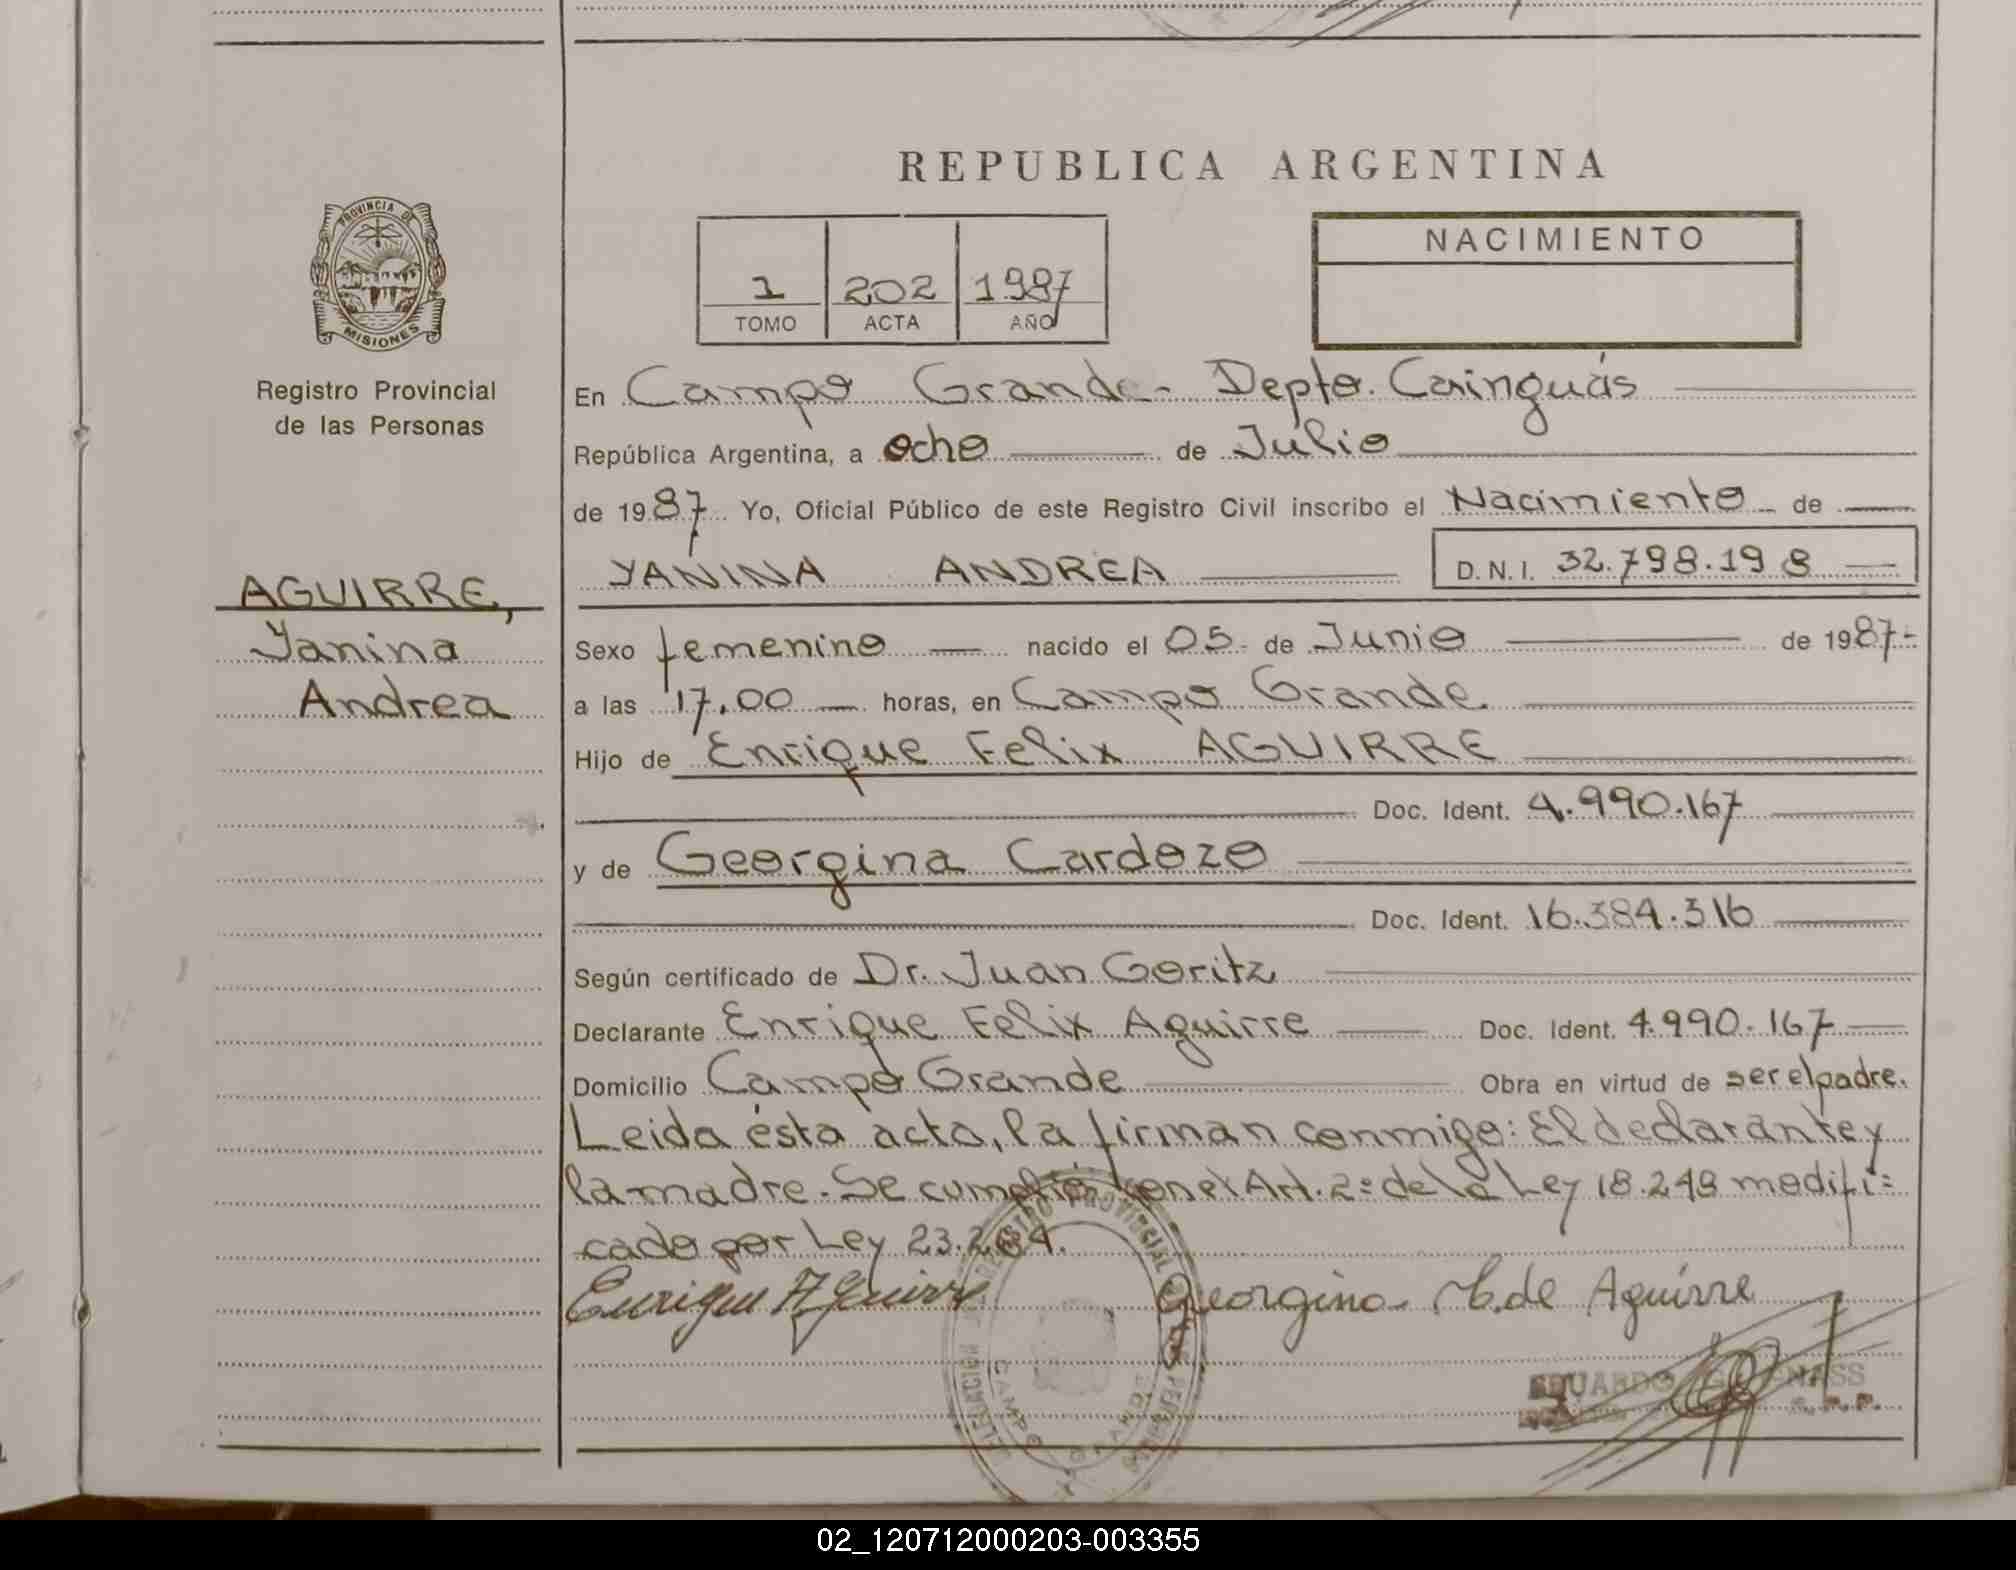 REPUBLICA ARGENTINA
PROVINCIA DE
MISIONES
Registro Provincial
de las Personas
AGUIRRE,
Yanina
Andrea
1 202 1987
TOMO ACTA AÑO
NACIMIENTO
En Campo Grande - Depto. Cainguás
República Argentina, a ocho de Julio
de 1987 Yo, Oficial Público de este Registro Civil inscribo el Nacimiento de
YANINA ANDREA D.N.I. 32.798.198
Sexo femenino nacido el 05 de Junio de 1987-
a las 17,00 horas, en Campo Grande
Hijo de Enrique Felix AGUIRRE
Doc. Ident. 4.990.167
y de Georgina Cardozo
Doc. Ident. 16.384.316
Según certificado de Dr. Juan Goritz
Declarante Enrique Felix Aguirre Doc. Ident. 4.990.167
Domicilio Campo Grande Obra en virtud de ser el padre.
Leida ésta acta, la firman conmigo: El declarante y
la madre. Se cumplió con el Art. 2º de la Ley 18.248 modifi=
cado por Ley 23.264.
Enrique Aguirre Georgina C. de Aguirre
REGISTRO PROVINCIAL DE LAS PERSONAS
CAMPO GRANDE
EDUARDO
02_120712000203-003355